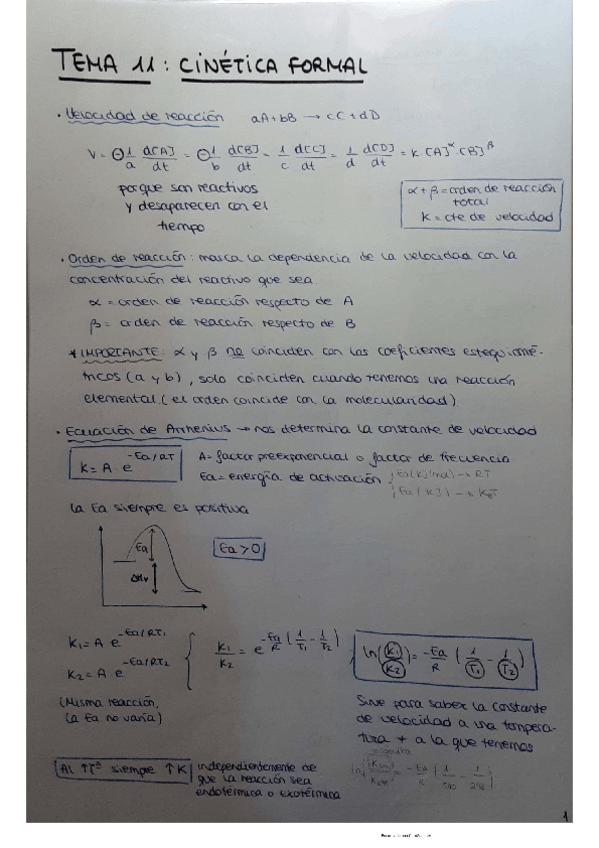 TEMA 11: CINÉTICA FORMAL
· Velocidad de reacción aA + bB → cC + dD
V = ⊖ 1/a d[A]/dt = ⊖ 1/b d[B]/dt = 1/c d[C]/dt = 1/d d[D]/dt = K·[A]^α·[B]^β
porque son reactivos
y desaparecen con el
tiempo
α + β = orden de reacción
total
K = cte de velocidad
· Orden de reacción: marca la dependencia de la velocidad con la
concentración del reactivo que sea.
α = orden de reacción respecto de A
β = orden de reacción respecto de B
* IMPORTANTE: α y β no coinciden con los coeficientes estequiomé-
tricos (a y b), solo coinciden cuando tenemos una reacción
elemental. (el orden coincide con la molecularidad)
· Ecuación de Arrhenius → nos determina la constante de velocidad
K = A · e^-Ea/RT
A = factor preexponencial o factor de frecuencia
Ea = energía de activación
Ea (KJ/mol) → RT
Ea (KJ) → KBT
La Ea siempre es positiva
Ea
ΔHr
Ea > 0
K1 = A e^-Ea/RT1
K2 = A e^-Ea/RT2
K1/K2 = e^-Ea/R (1/T1 - 1/T2)
ln(K1/K2) = -Ea/R (1/T1 - 1/T2)
(Misma reacción,
la Ea no varía)
Sirve para saber la constante
de velocidad a una tempera-
tura ≠ a la que tenemos
Al ↑↑Tª siempre ↑K
independientemente de
que la reacción sea
endotérmica o exotérmica
1